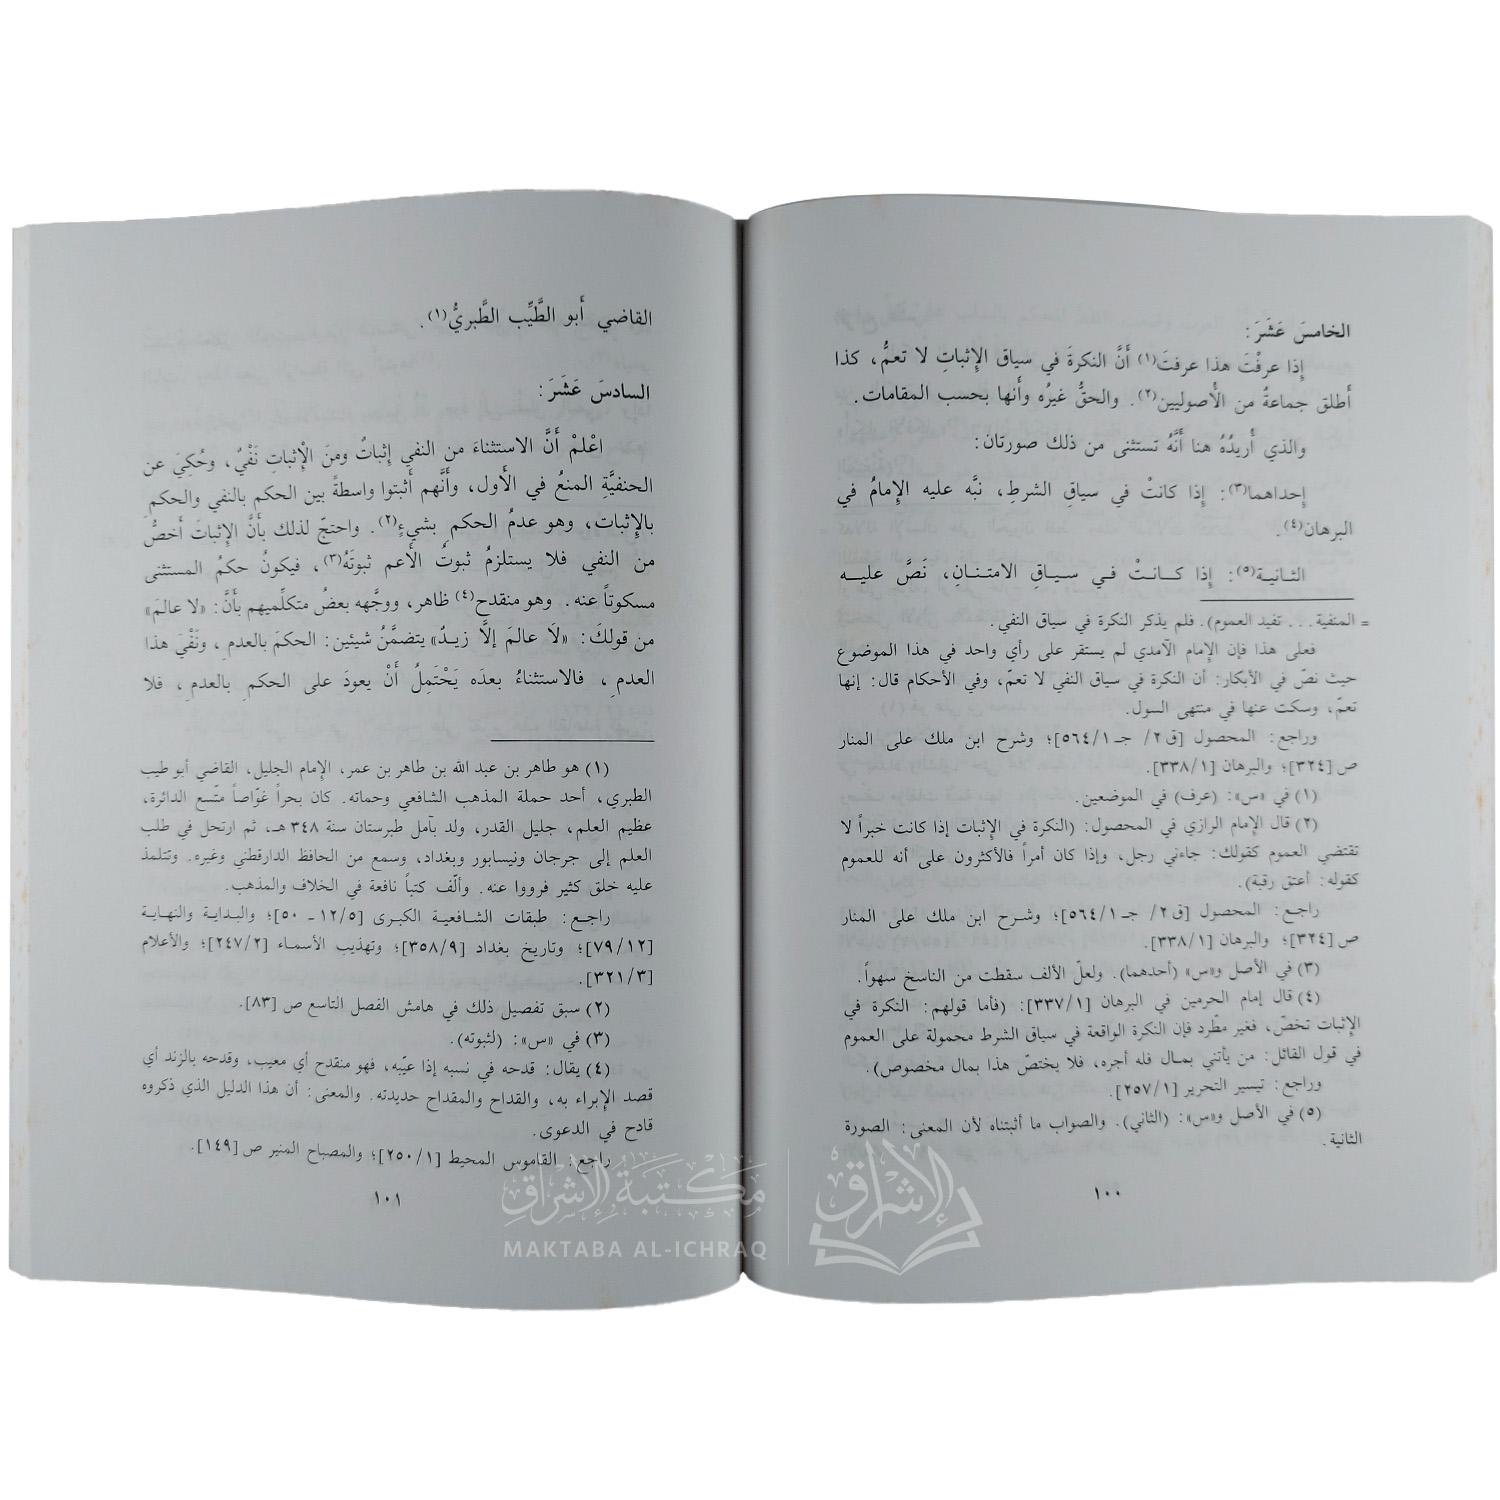 الخامسَ عَشَرَ:
إِذا عرفْتَ هذا عرفتَ(١) أَنَّ النكرةَ في سياق الإِثباتِ لا تعمُّ، كذا
أَطلق جماعةٌ من الأُصوليين(٢). والحقُّ غيرُه وأَنها بحسب المقامات.
والذي أُريدُهُ هنا أَنَّهُ تستثنى من ذلك صورتان:
إِحداهما(٣): إِذا كانتْ في سياقِ الشرطِ، نبَّه عليه الإِمامُ في
البرهان(٤).
الثانية(٥): إِذا كانتْ في سياقِ الامتنانِ، نَصَّ عليه
= المنفية... تفيد العموم). فلم يذكر النكرة في سياق النفي.
فعلى هذا فإن الإمام الآمدي لم يستقر على رأي واحد في هذا الموضوع
حيث نصّ في الأبكار: أن النكرة في سياق النفي لا تعمّ، وفي الأحكام قال: إنها
تعمّ، وسكت عنها في منتهى السول.
وراجع: المحصول [ق٢/ جـ ٥٦٤/١]؛ وشرح ابن ملك على المنار
ص [٣٢٤]؛ والبرهان [٣٣٨/١].
(١) في «س»: (عرف) في الموضعين.
(٢) قال الإمام الرازي في المحصول: (النكرة في الإثبات إذا كانت خبراً لا
تقتضي العموم كقولك: جاءني رجل، وإذا كان أمراً فالأكثرون على أنه للعموم
كقوله: أعتق رقبة).
راجع: المحصول [ق٢/ جـ ٥٦٤/١]؛ وشرح ابن ملك على المنار
ص [٣٢٤]؛ والبرهان [٣٣٨/١].
(٣) في الأصل و«س» (أحدهما). ولعلّ الألف سقطت من الناسخ سهواً.
(٤) قال إمام الحرمين في البرهان [٣٣٧/١]: (فأما قولهم: النكرة في
الإثبات تخصّ، فغير مطّرد فإن النكرة الواقعة في سياق الشرط محمولة على العموم
في قول القائل: من يأتني بمال فله أجره، فلا يختصّ هذا بمال مخصوص).
وراجع: تيسير التحرير [٢٥٧/١].
(٥) في الأصل و«س»: (الثاني). والصواب ما أثبتناه لأن المعنى: الصورة
الثانية.
١٠٠
القاضي أَبو الطَّيِّب الطَّبريُّ(١).
السادسَ عَشَرَ:
اعْلمْ أَنَّ الاستثناءَ من النفي إِثباتٌ ومنَ الإثباتِ نَفْيٌ، وحُكِيَ عن
الحنفيَّةِ المنعُ في الأَول، وأَنَّهم أَثبتوا واسطةً بين الحكم بالنفي والحكمِ
بالإِثبات، وهو عدمُ الحكمِ بشيءٍ(٢). واحتجّ لذلك بأَنَّ الإِثباتَ أَخصُّ
من النفي فلا يستلزمُ ثبوتُ الأَعم ثبوتَهُ(٣)، فيكونُ حكمُ المستثنى
مسكوتاً عنه. وهو منقدح(٤) ظاهر، ووجَّهه بعضُ متكلِّميهم بأَنَّ: «لا عالمَ»
من قولكَ: «لَا عالمَ إلَّا زيدٌ» يتضمَّنُ شيئين: الحكمَ بالعدمِ، ونَفْيَ هذا
العدمِ، فالاستثناءُ بعدَه يَحْتَمِلُ أَنْ يعودَ على الحكمِ بالعدمِ، فلا
(١) هو طاهر بن عبد الله بن طاهر بن عمر، الإمام الجليل، القاضي أبو طيب
الطبري، أحد حملة المذهب الشافعي وحماته. كان بحراً غوّاصاً متّسع الدائرة،
عظيم العلم، جليل القدر، ولد بآمل طبرستان سنة ٣٤٨ هـ، ثم ارتحل في طلب
العلم إلى جرجان ونيسابور وبغداد، وسمع من الحافظ الدارقطني وغيره. وتتلمذ
عليه خلق كثير فرووا عنه. وألّف كتباً نافعة في الخلاف والمذهب.
راجع: طبقات الشافعية الكبرى [١٢/٥ ـ ٥٠]؛ والبداية والنهاية
[٧٩/١٢]؛ وتاريخ بغداد [٣٥٨/٩]؛ وتهذيب الأسماء [٢٤٧/٢]؛ والأعلام
[٣٢١/٣].
(٢) سبق تفصيل ذلك في هامش الفصل التاسع ص [٨٣].
(٣) في «س»: (لثبوته).
(٤) يقال: قدحه في نسبه إذا عيّبه، فهو منقدح أي معيب، وقدحه بالزند أي
قصد الإبراء به، والقداح والمقداح حديدته. والمعنى: أن هذا الدليل الذي ذكروه
قادح في الدعوى.
راجع: القاموس المحيط [٢٥٠/١]؛ والمصباح المنير ص [١٤٩].
١٠١
مكتبة الإشراق
MAKTABA AL-ICHRAQ
الإشراق